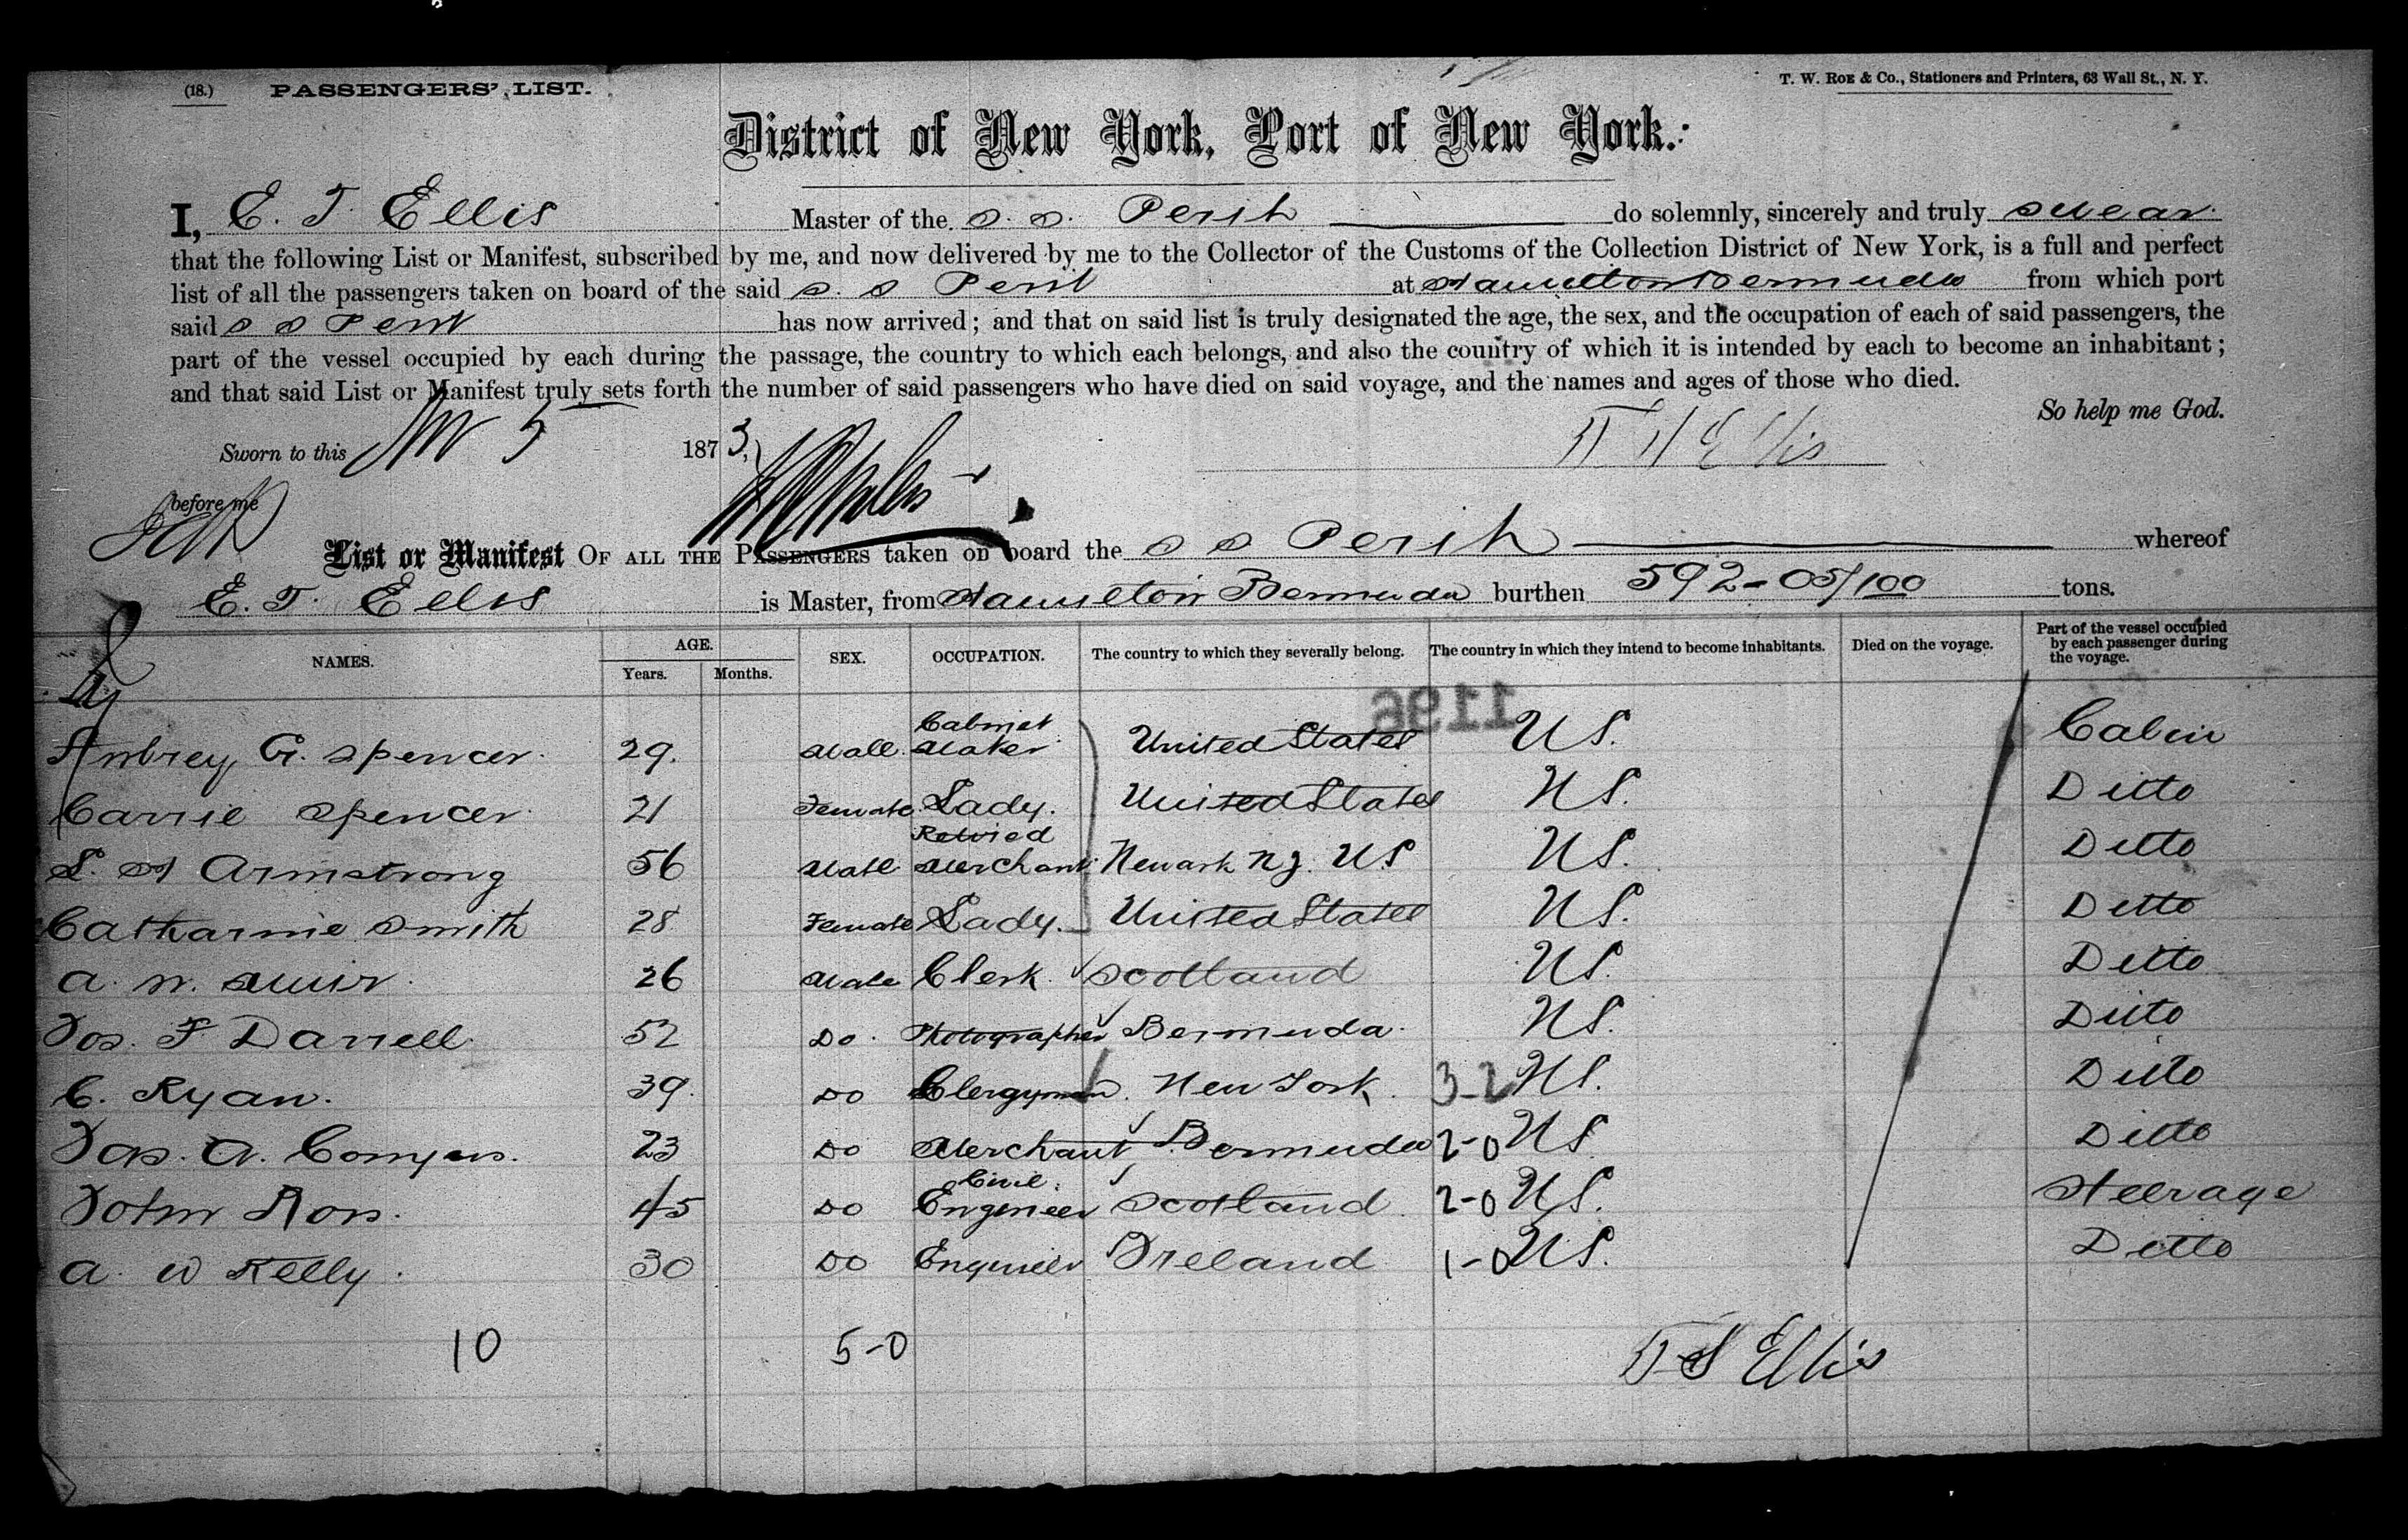 (18.) PASSENGERS' LIST.
T. W. ROE & Co., Stationers and Printers, 63 Wall St., N. Y.
District of New York, Port of New York.:
I, E. T. Ellis Master of the S. S. Perit do solemnly, sincerely and truly swear
that the following List or Manifest, subscribed by me, and now delivered by me to the Collector of the Customs of the Collection District of New York, is a full and perfect
list of all the passengers taken on board of the said S. S Perit at Hamilton Bermuda from which port
said S S Perit has now arrived; and that on said list is truly designated the age, the sex, and the occupation of each of said passengers, the
part of the vessel occupied by each during the passage, the country to which each belongs, and also the country of which it is intended by each to become an inhabitant;
and that said List or Manifest truly sets forth the number of said passengers who have died on said voyage, and the names and ages of those who died.
So help me God.
Sworn to this 5 1873, Ellis
before me
List or Manifest OF ALL THE PASSENGERS taken on board the S S Perit whereof
E. T. Ellis is Master, from Hamilton Bermuda burthen 592-05/100 tons.
NAMES. AGE. Years. Months. SEX. OCCUPATION. The country to which they severally belong. The country in which they intend to become inhabitants. Died on the voyage. Part of the vessel occupied by each passenger during the voyage.
1196
Aubrey G. Spencer. 29. Male. Cabinet Maker United States US. Cabin
Carrie Spencer 21 Female Lady. United States US. Ditto
S. H Armstrong 56 Male Retried Merchant Newark NJ. US US. Ditto
Catharine Smith 28 Female Lady. United States US. Ditto
A. N. Muir. 26 Male Clerk. Scotland US. Ditto
Jos. F Darrell 52 Do. Photographer Bermuda. US. Ditto
C. Ryan. 39. Do Clergyman. New York. 3-2 US. Ditto
Jas. A. Conyers. 23 Do Merchant Bermuda 2-0 US. Ditto
John Ross. 45 Do Civil. Engineer Scotland. 2-0 US. Steerage
A. W Kelly. 30 Do Engineer Ireland 1-0 US. Ditto
10 5-0 Ellis